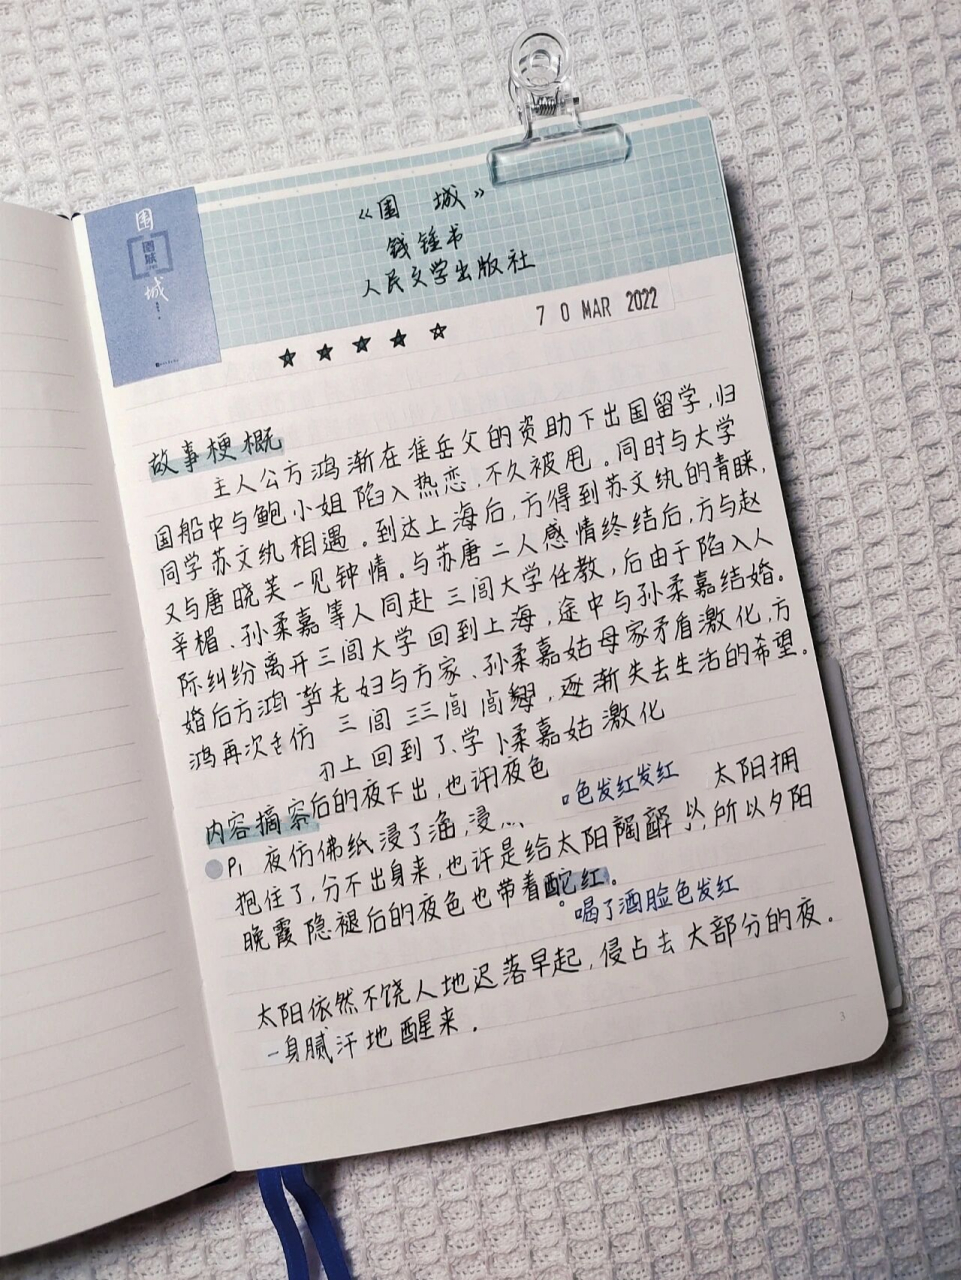 围
围城
城
《围 城》
钱锺书
人民文学出版社
7 0 MAR 2022
故事梗概
主人公方鸿渐在准岳父的资助下出国留学,归
国船中与鲍小姐陷入热恋,不久被甩。同时与大学
同学苏文纨相遇。到达上海后,方得到苏文纨的青睐,
又与唐晓芙一见钟情。与苏唐二人感情终结后,方与赵
辛楣、孙柔嘉等人同赴三闾大学任教,后由于陷入人
际纠纷离开三闾大学回到上海,途中与孙柔嘉结婚。
婚后方鸿渐夫妇与方家、孙柔嘉姑母家矛盾激化,方
鸿再次 仿 三闾 三 闾 闾 ,逐渐失去生活的希望。
上回到了、学 柔嘉姑激化
内容摘容后的夜下出,也许夜色
色发红发红
太阳拥
P1 夜仿佛纸浸了油,浸
抱住了,分不出身来,也许是给太阳陶醉 以,所以夕阳
晚霞隐褪后的夜色也带着酡红。
喝了酒脸色发红
太阳依然不饶人地迟落早起,侵占去大部分的夜。
一身腻汗地醒来.
3